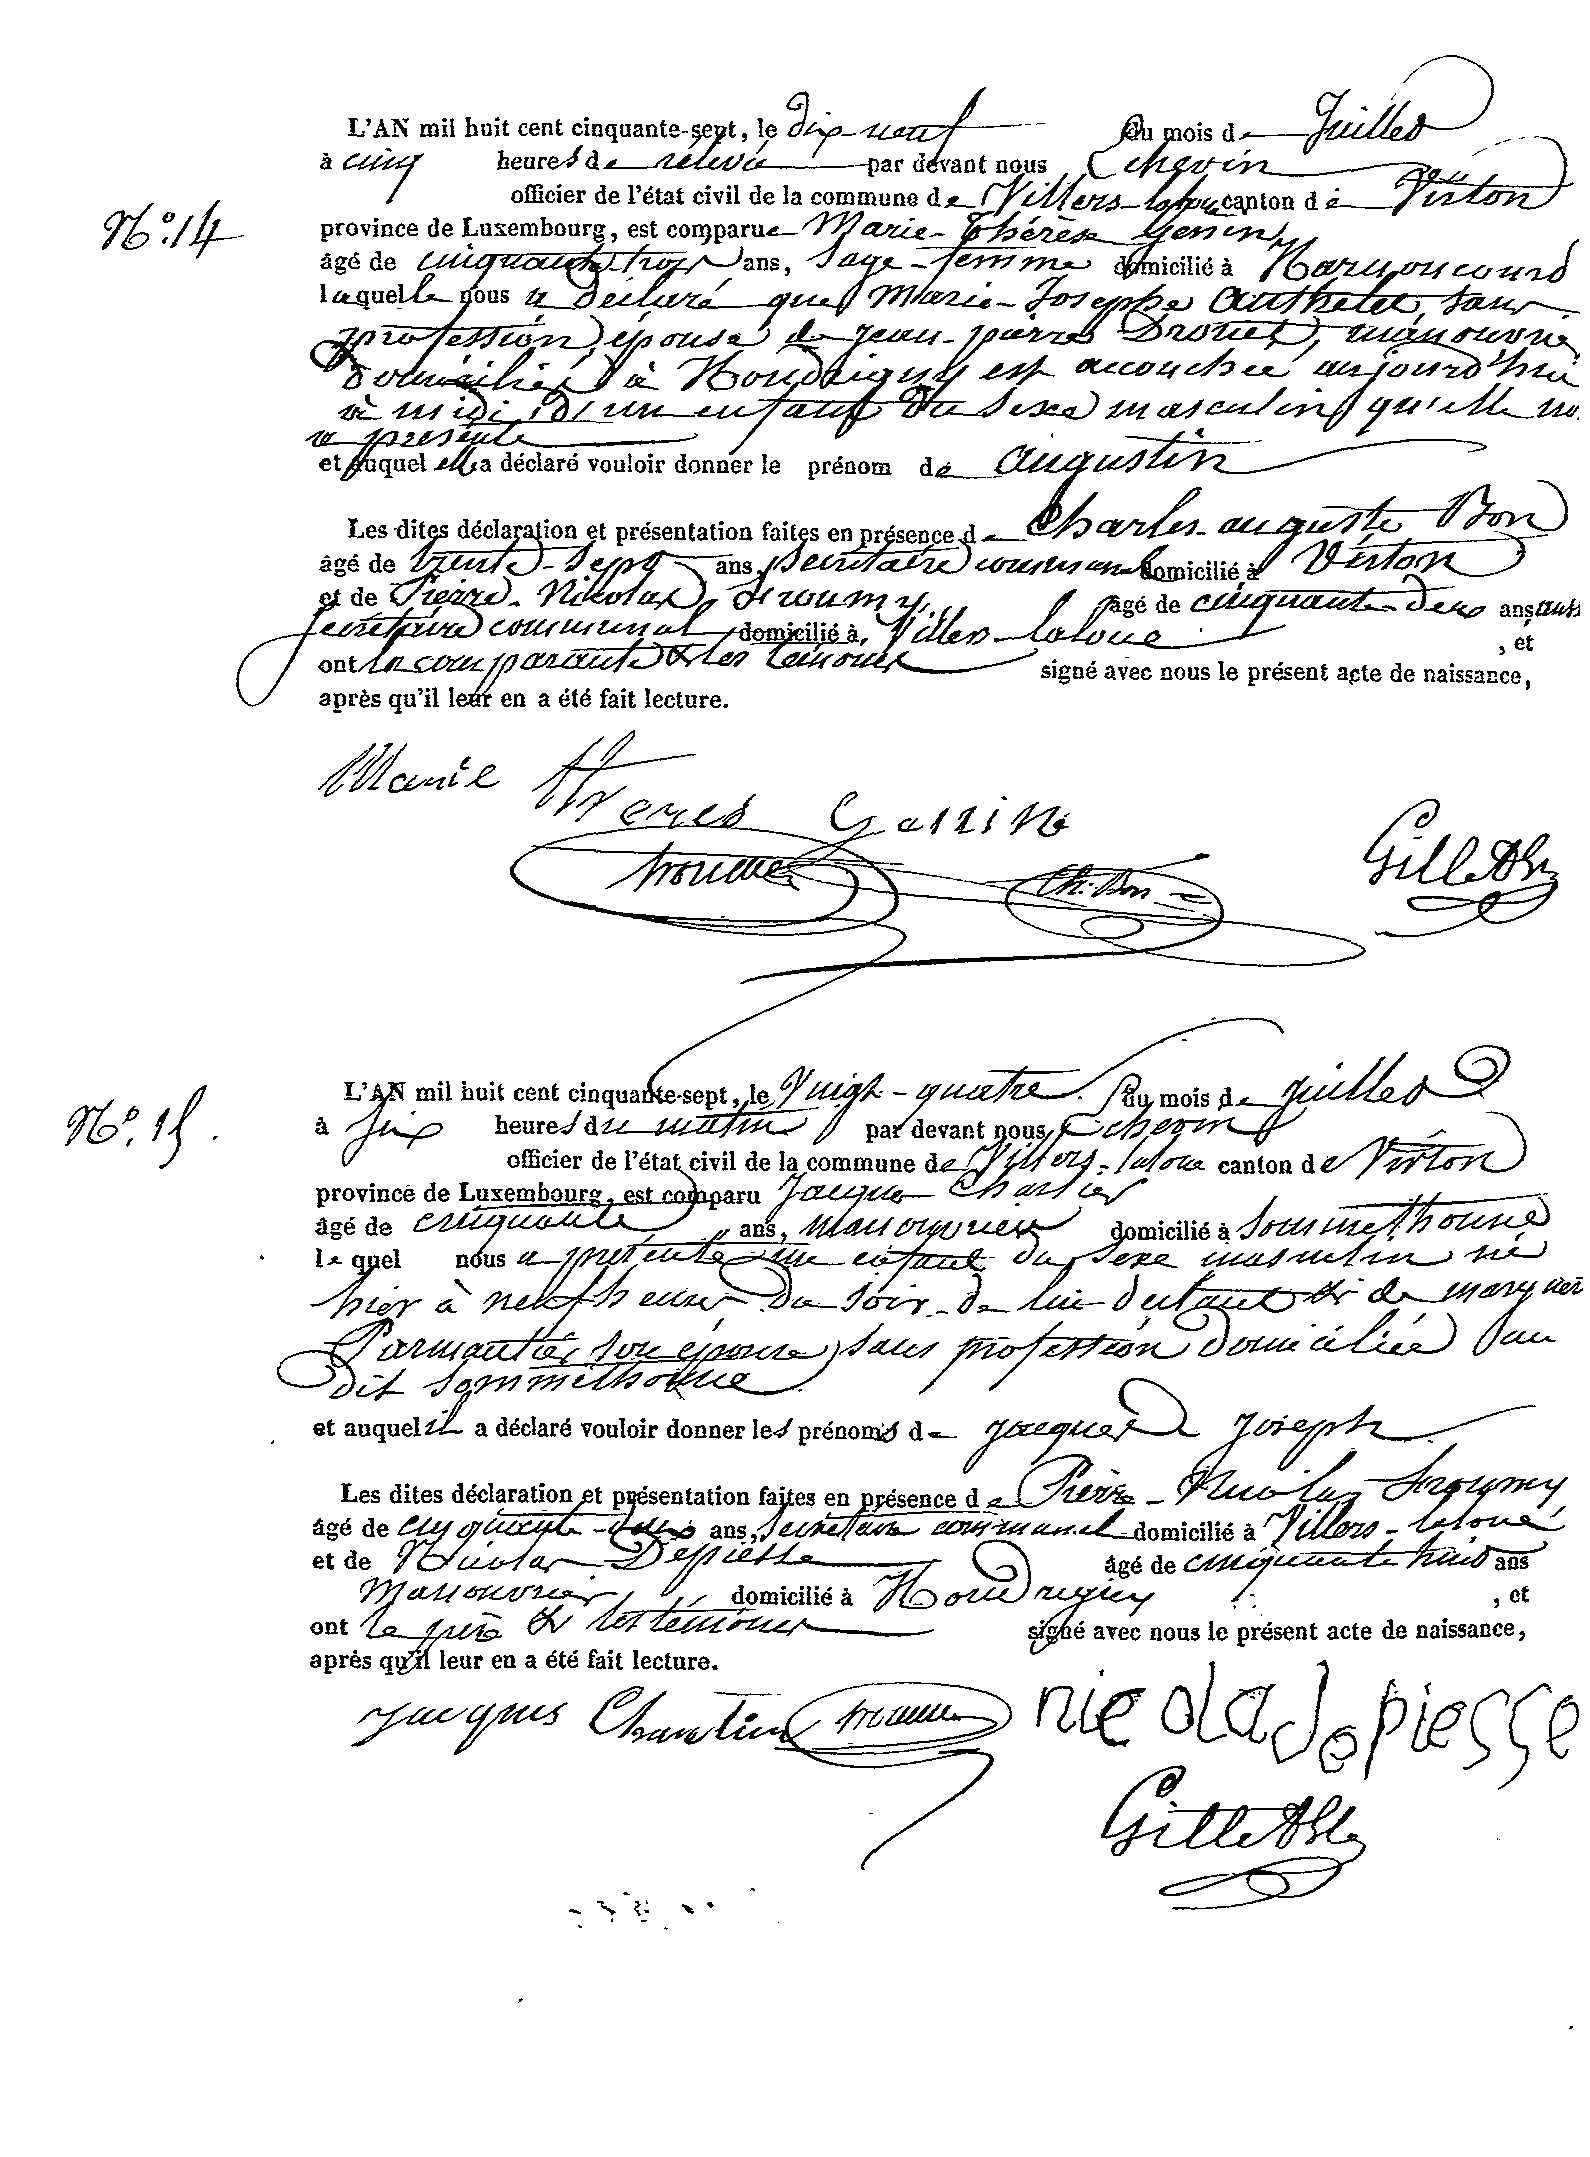 L'AN mil huit cent cinquante-sept, le dix-neuf du mois de Juillet
à cinq heures de relevée par devant nous Echevin
officier de l'état civil de la commune de Villers-laloue canton de Virton
N.º 14
province de Luxembourg, est comparue Marie-Thérèse Genin
âgé de cinquante-trois ans, Sage-femme domicilié à Harnoncourt
laquelle nous a déclaré que Marie-Josephe Authelet, sans
profession, épouse de Jean-pierre Drouet, manouvrie
domiciliés à Houdrigny est accouchée aujourd'hui
à midi, d'un enfant du sexe masculin qu'elle no
a présenté
et auquel elle a déclaré vouloir donner le prénom de Augustin
Les dites déclaration et présentation faites en présence de Charles-auguste Bon
âgé de trente-sept ans, secrétaire communal domicilié à Virton
et de Pierre-Nicolas âgé de cinquante-deux ans, aussi
secrétaire communal domicilié à Villers-laloue , et
ont la comparante & les témoins signé avec nous le présent acte de naissance,
après qu'il leur en a été fait lecture.
Marie Genin
Ch. Bon
L'AN mil huit cent cinquante-sept, le Vingt-quatre du mois de Juillet
N.º 15.
à six heures du matin par devant nous Echevin
officier de l'état civil de la commune de Villers-laloue canton de Virton
province de Luxembourg, est comparu Jacques
âgé de cinquante ans, manouvrier domicilié à Sommethonne
lequel nous a présenté un enfant du sexe masculin né
hier à neuf heures du soir de lui déclarant & de
Parmantier son épouse, sans profession domiciliée au
dit Sommethonne
et auquel il a déclaré vouloir donner les prénoms de Jacques Joseph
Les dites déclaration et présentation faites en présence de Pierre-Nicolas
âgé de cinquante-deux ans, secrétaire communal domicilié à Villers-laloue
et de Nicolas Depiesse âgé de cinquante huit ans
Manouvrier domicilié à Houdrigny , et
ont le père & les témoins signé avec nous le présent acte de naissance,
après qu'il leur en a été fait lecture.
Jacques nicola depiesse